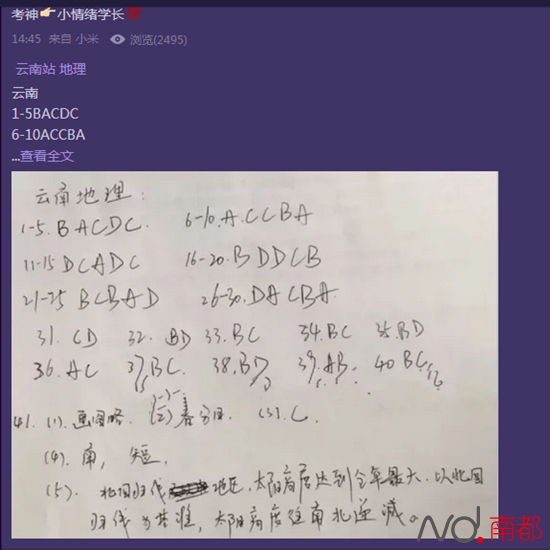 考神👉小情绪学长💯
14:45 来自 小米 浏览(2495)
云南站 地理
云南
1-5BACDC
6-10ACCBA
...查看全文
云南地理:
1-5. BACDC. 6-10. ACCBA
11-15 DCADC 16-20. BDDCB
21-25 BCBAD 26-30. DACBA.
31. CD 32. BD 33. BC 34. BC 35. BD
36. AC 37. BC. 38. BD 39. AB. 40 BC
41. (1). 画图略. (2) 春分日. (3). C.
(4). 南, 短.
(5). 北回归线 地区, 太阳高度达到全年最大. 以北回
归线为基准, 太阳高度往南北递减。
Nd.南都